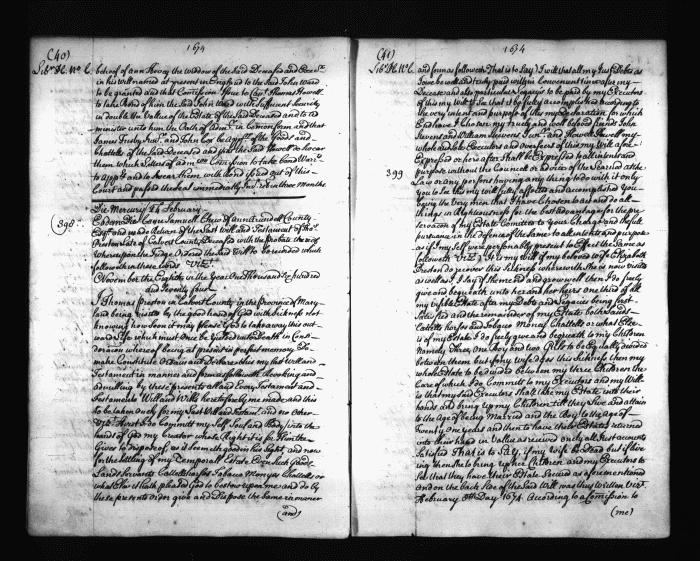 1674
(40)
Lib.r H. No. C.
behoof of ann Howes the widow of the said Deceased and Exec.x
in his will named at present in England to the said John Ward
to be granted and that Comission Issue to Capt Thomas Howell
to take Bond of him the said John Ward with Sufficient Security
in double the Value of the Estate of the said Deceased and to ad
minister unto him the Oath of adm.r in Comon form and that
James and John Cox be app.rs of the Goods and
Chattells of the said Deceased and that the said Howell do swear
them which Letters of adm.on Comission to take bond Warr.t
to app.rs and to swear them with bond issued out of this
Court and passed the seal immediately Inv.ry in three Months
Die Mercury February
398
Eodem Die Came Samuell Chew of annarundell County
Esq.r and made Return of the Last Will and Testament of Tho.s
Preston late of Calvert County Deceased with the probate thereof
Whereupon the Judge Ordered the said Will to be recorded which
followeth in these words Viz.t
November the Eighth in the year One Thousand Six hundred
and Seventy four
I Thomas Preston in Calvert County in the province of Mary-
land being visited by the good hand of God with Sickness not
knowing how soon it may please God to take away this out
ward life which must Once be yeilded unto Death in Consi
deration whereof being at present in perfect memory Do
make Constitute Ordain and Declare this my last Will and
Testament in manner and form as followeth Revoking and
adnulling by these presents all and Every Testament and
Testaments Will and Wills heretofore by me made and this
to be taken only for my Last Will and Testament and no Other
Viz.t First I do Committ my Self Soul and Body into the
hands of God my Creator whose Right it is for Him the
Giver to dispose of as it seemeth good in his Sight, and now
for the settling of my Temporall Estate Even such Goods
Lands Servants Cattell horses Tobacco Monys Chattells or
what Else it hath pleased God to bestow upon me and do by
these presents order give and Dispose the same in manner
(and)
1674
(41)
Lib.r H. No. C.
and form as followeth That is to Say I will that all my Just Debts as
I owe be well and truly paid within Convenient time after my
Decease and also particular Legacys to be paid by my Executors
of this my Will To See that it be fully accomplished according to
the very intent and purpose of this my Declaration for which
End have I Chosen my truly and well beloved friends John
Stevens and William Stevens Sen.r and Howell Powell my
whole and sole Executors and overseers of this my Will afore
Expressed or hereafter shall be Expressed to all intents and
purpose without the Councill or Advice of the Learned at the
399
Law or any persons having any thing to do with it only
you to See this my Will fully affected and accomplished You
being the Very men that I have Chosen to act and do all
things in Righteousness for the best advantage for the pre
servacon of my Estate Comitted to your Charge and the full
pursuance in the Defence of the same to all intents and purpose
as if my Self were personally present to Effect the same as
followeth Viz.t It is my Will if my beloved wife Elizabeth
Preston do recover this Sickness wherewith She is now visited
as well as I, I say if She mend and grow well then I do freely
give and bequeath unto her and her heirs one third of all
my Visible Estate after my Debts and Legacies being first
Satisfied and the remainder of my Estate both Lands
Cattells horses and Tobacco Money Chattells or what Else
is of my Estate I do freely give and bequeath to my Children
Namely Three, One Boy and two Girls to be Equally divided
between them, but if my wife Dyes this Sickness then my
whole Estate to be divided between my three Children the
Care of which I do Commit to my Executors and my Will
is that my said Executors shall take my Estate into their
hands and bring up my Children till they Live and attain
to the age of being Married and the Boy to the age of
Twenty One years and then to have their Estates returned
into their hand in Value as received only all Just accounts
Satisfied That is to Say, if my wife be Dead but if live
ing then She to bring up her Children and my Executors to
See that they have their Estate Secured as aforementioned
and on the back Side of the said Will was thus Written Viz.t
February 8th Day 1674. According to a Comission to
(me)